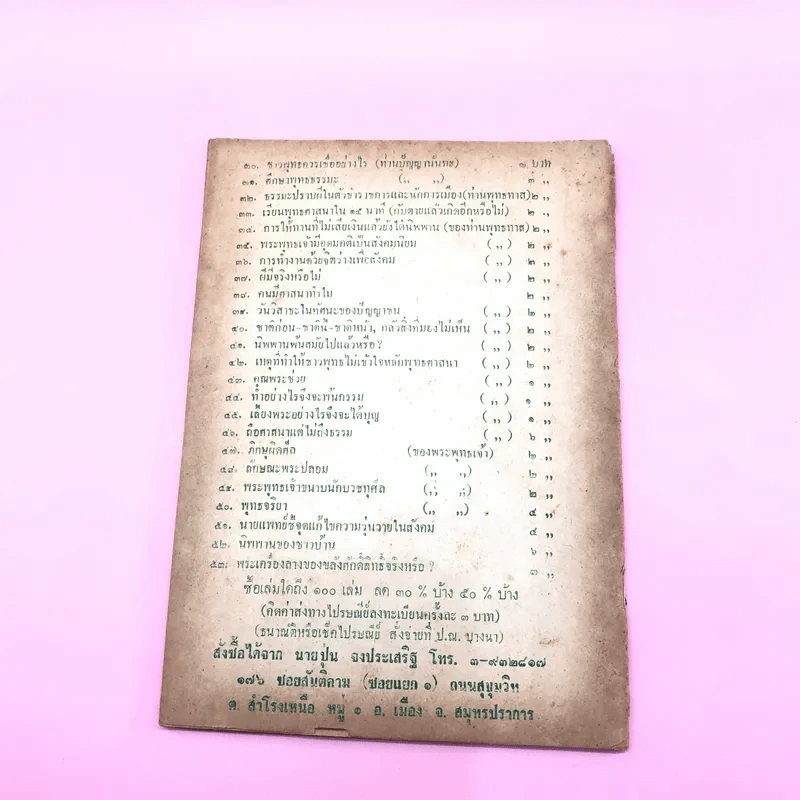 ๓๐. ชาวพุทธควรเชื่ออย่างไร (ท่านปัญญานันทะ) ๑ บาท
๓๑. ศึกษาพุทธธรรมะ (,, ,,) ๓ ,,
๓๒. ธรรมะปราบผีในตัวข้าราชการและนักการเมือง(ท่านพุทธทาส) ๒ ,,
๓๓. เรียนพุทธศาสนาใน ๑๕ นาที (กับตายแล้วเกิดอีกหรือไม่) ๒ ,,
๓๔. การให้ทานที่ไม่เสียเงินแล้วยังได้นิพพาน (ของท่านพุทธทาส) ๒ ,,
๓๕. พระพุทธเจ้ามีอุดมคติเป็นสังคมนิยม ( ,, ) ๒ ,,
๓๖. การทำงานด้วยจิตว่างเพื่อสังคม ( ,, ) ๒ ,,
๓๗. ผีมีจริงหรือไม่ ( ,, ) ๒ ,,
๓๘. คนมีศาสนาทำไม ๒ ,,
๓๙. วันวิสาขะในทัศนะของปัญญาชน ( ,, ) ๒ ,,
๔๐. ชาติก่อน-ชาตินี้-ชาติหน้า, กลัวสิ่งที่มองไม่เห็น ( ,, ) ๒ ,,
๔๑. นิพพานพ้นสมัยไปแล้วหรือ? ( ,, ) ๒ ,,
๔๒. เหตุที่ทำให้ชาวพุทธไม่เข้าใจหลักพุทธศาสนา ( ,, ) ๒ ,,
๔๓. คุณพระช่วย ( ,, ) ๑ ,,
๔๔. ทำอย่างไรจึงจะพ้นกรรม ( ,, ) ๑ ,,
๔๕. เลี้ยงพระอย่างไรจึงจะได้บุญ ( ,, ) ๑ ,,
๔๖. ถือศาสนาแต่ไม่ถึงธรรม ( ,, ) ๖ ,,
๔๗. ภิกษุผิดศีล (ของพระพุทธเจ้า) ๒ ,,
๔๘. ลักษณะพระปลอม (,, ,,) ๒ ,,
๔๙. พระพุทธเจ้าขนาบนักบวชทุศีล (,, ,,) ๒ ,,
๕๐. พุทธจริยา (,, ,,) ๕ ,,
๕๑. นายแพทย์ชี้จุดแก้ไขความวุ่นวายในสังคม ๔ ,,
๕๒. นิพพานของชาวบ้าน ๖ ,,
๕๓. พระเครื่องลางของขลังศักดิ์สิทธิ์จริงหรือ? ๓ ,,
ซื้อเล่มใดถึง ๑๐๐ เล่ม ลด ๓๐ % บ้าง ๕๐ % บ้าง
(คิดค่าส่งทางไปรษณีย์ลงทะเบียนครั้งละ ๓ บาท)
(ธนาณัติหรือเช็คไปรษณีย์ สั่งจ่ายที่ ป.ณ. บางนา)
สั่งซื้อได้จาก นายปุ่น จงประเสริฐ โทร. ๓-๙๓๒๔๑๗
๑๗๖ ซอยสันติคาม (ซอยแยก ๑) ถนนสุขุมวิท
ต. สำโรงเหนือ หมู่ ๑ อ. เมือง จ. สมุทรปราการ